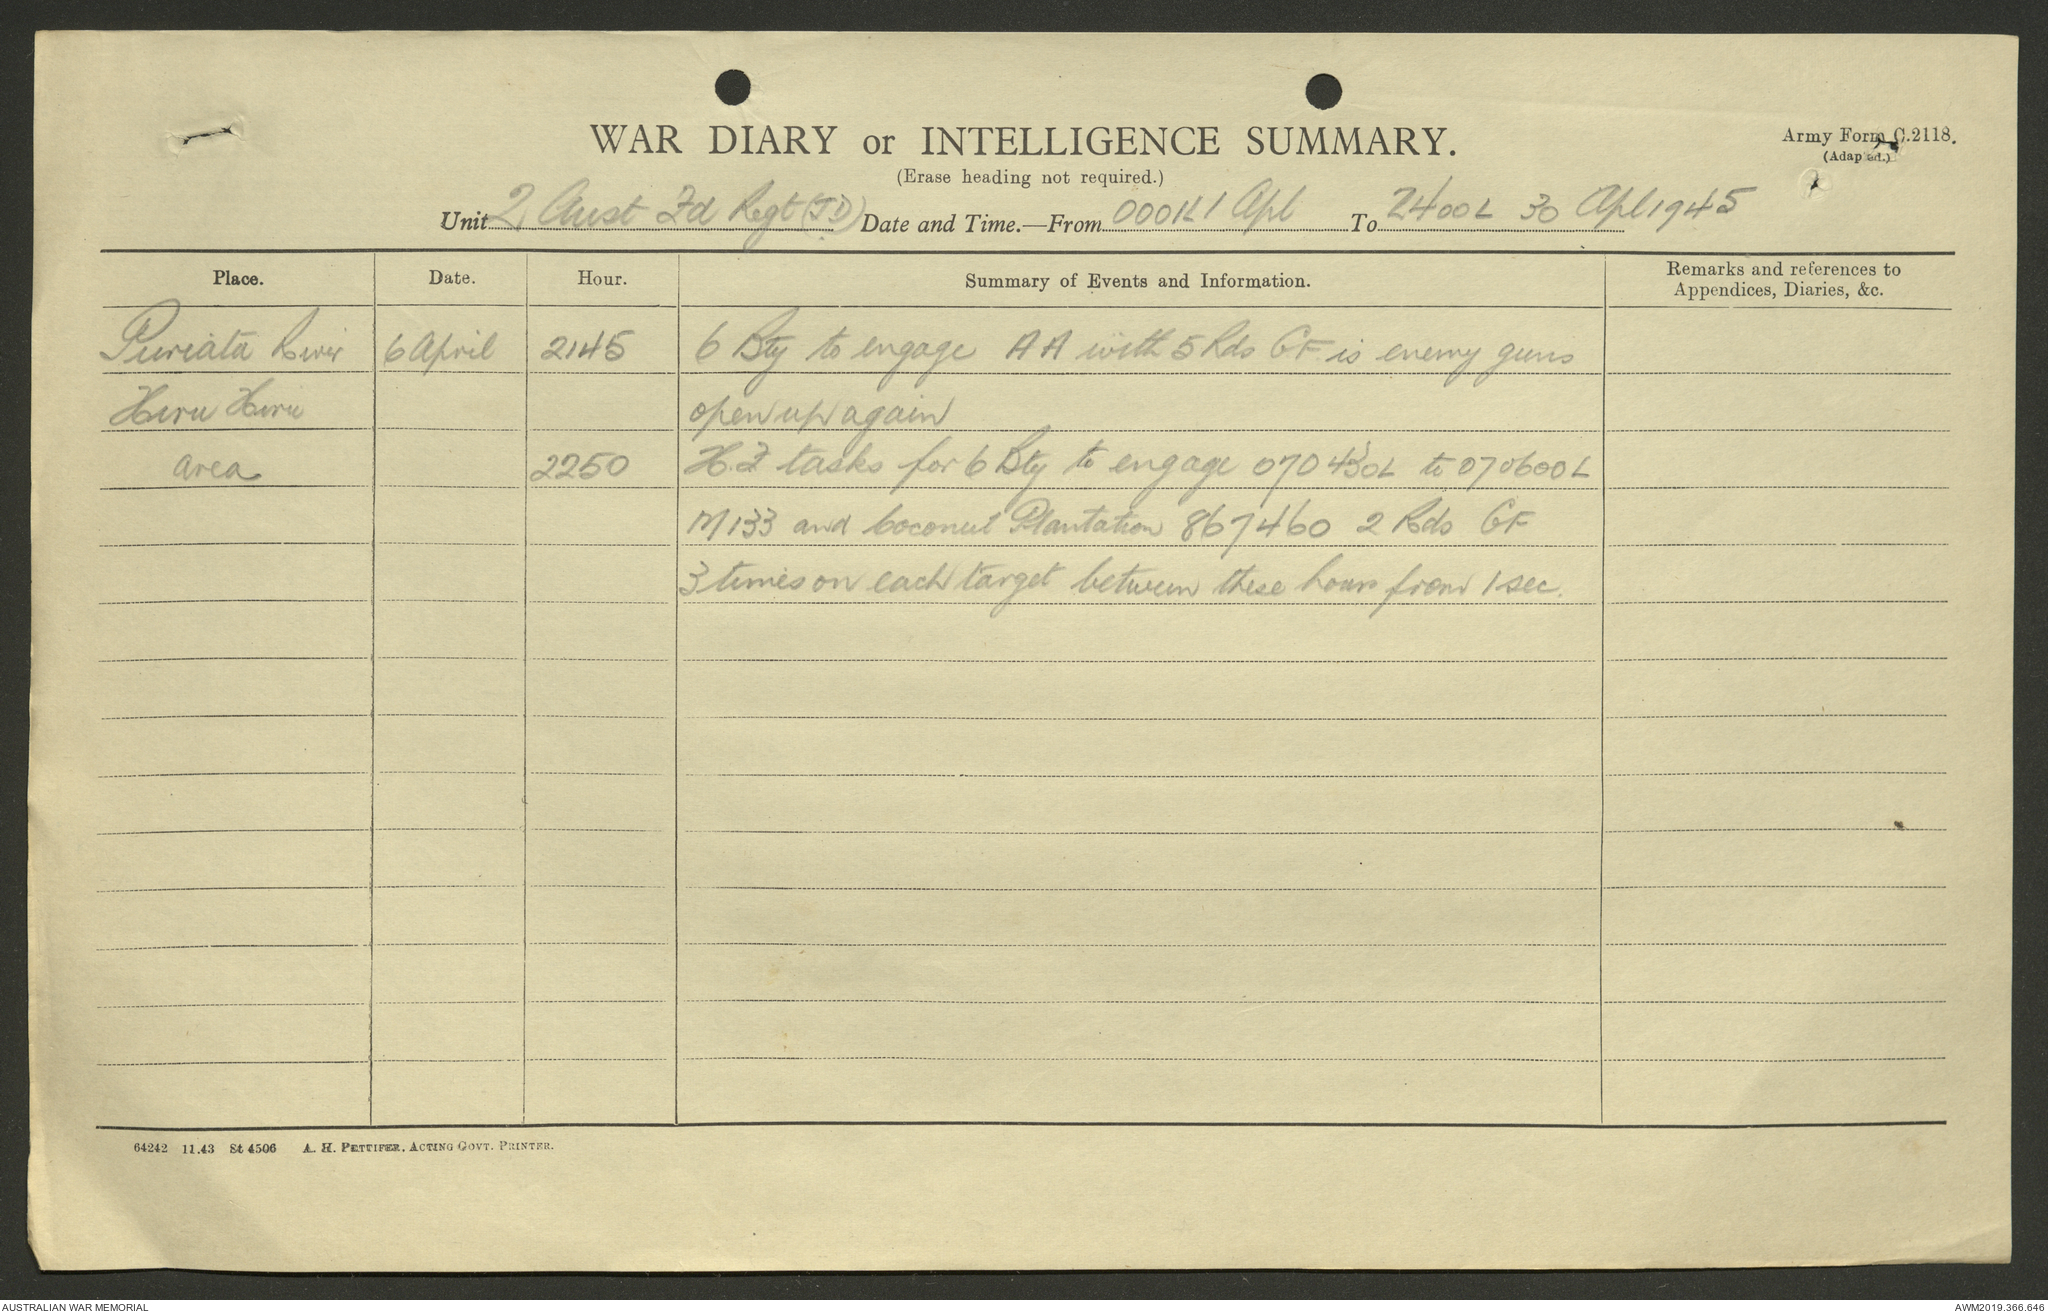 WAR DIARY or INTELLIGENCE SUMMARY.
Army Form C.2118.
(Adapted.)
(Erase heading not required.)
Unit 2 Aust Fd Regt (JD) Date and Time.—From 0001L 1 Apl To 2400L 30 Apl 1945
Place. Date. Hour. Summary of Events and Information. Remarks and references to
Appendices, Diaries, &c.
Puriata River 6 April 2145 6 Bty to engage AA with 5 Rds GF is enemy guns
Hiru Hiru open up again
area 2250 H.F tasks for 6 Bty to engage 070430L to 070600L
M133 and Coconut Plantation 867460 2 Rds GF
3 times on each target between these hours from 1 sec.
64242 11.43 St 4506 A. H. PETTIFER, ACTING GOVT. PRINTER.
AUSTRALIAN WAR MEMORIAL
AWM2019.366.646